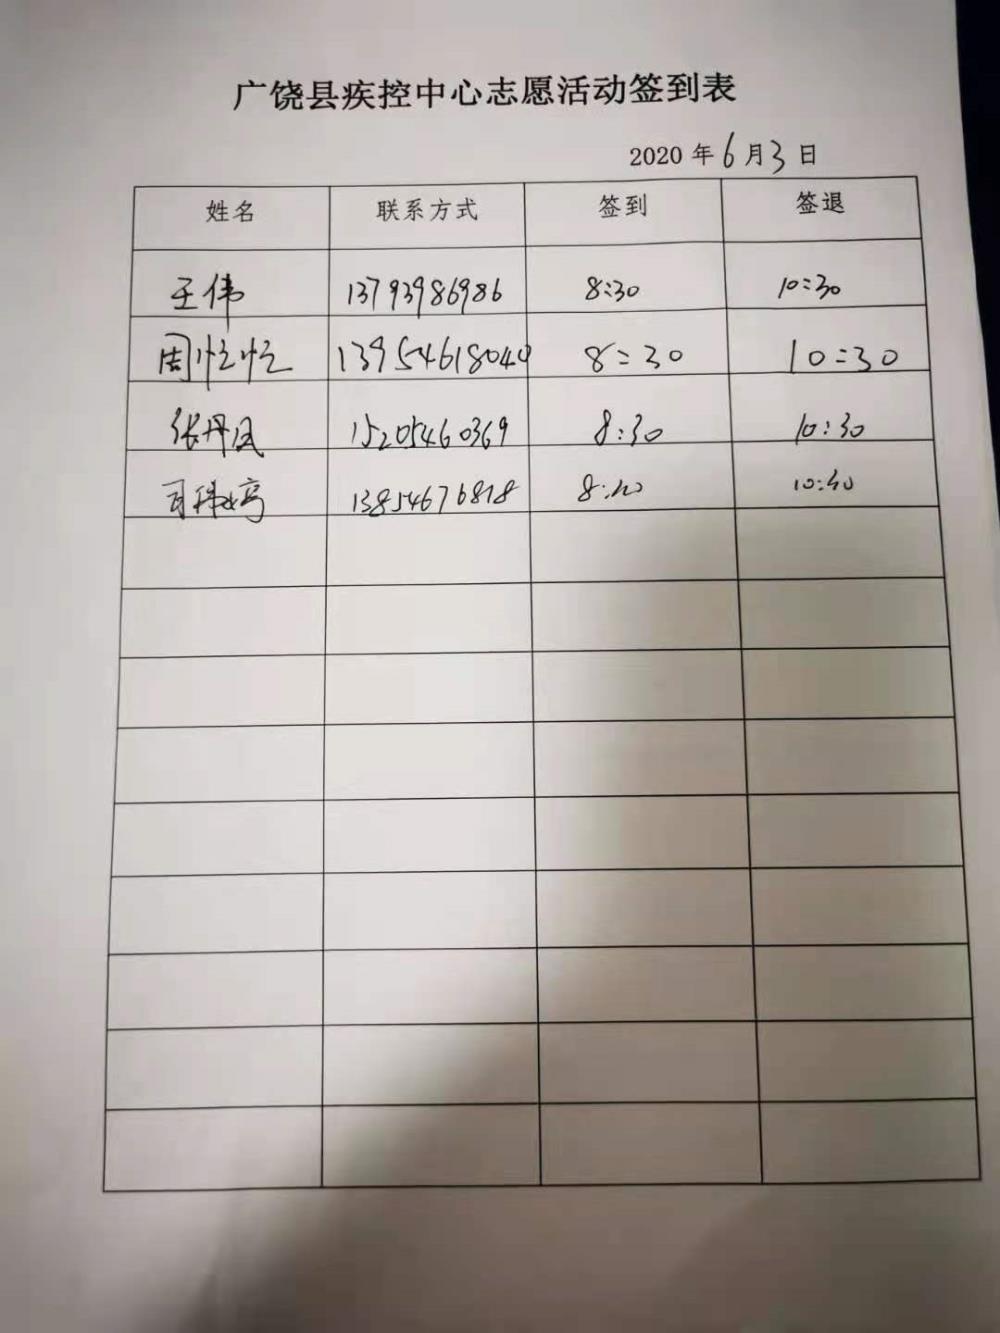 广饶县疾控中心志愿活动签到表
2020 年 6 月 3 日
姓名 联系方式 签到 签退
王伟 13793986986 8:30 10:30
周忙忙 13954618040 8:30 10:30
张丹凤 15205460369 8:30 10:30
司 13854676818 8: 10: